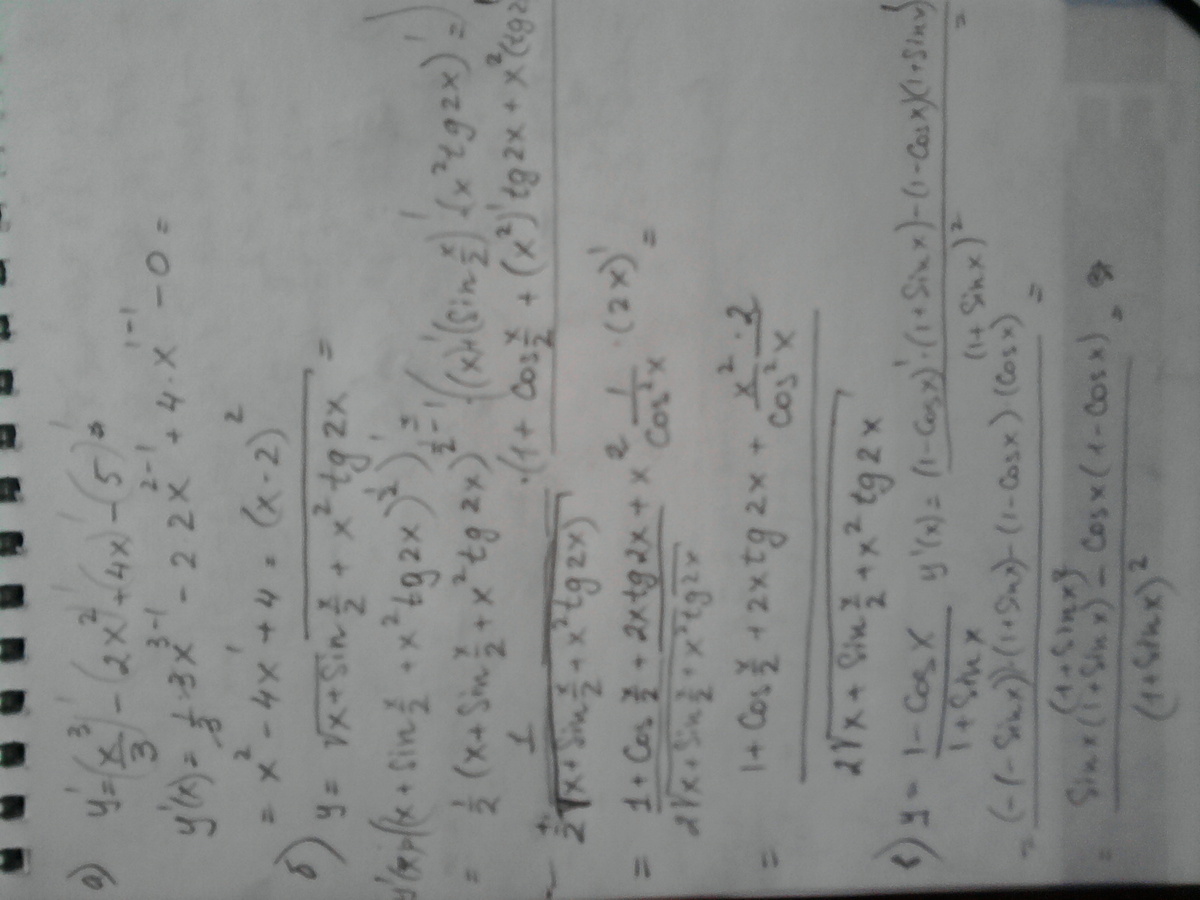 а) y' = (x³/3)' - (2x²)' + (4x)' - (5)' =
y'(x) = 1/3 · 3x³⁻¹ - 2·2x²⁻¹ + 4·x¹⁻¹ - 0 =
= x² - 4x' + 4 = (x-2)²
б) y = √(x + sin x/2 + x² tg2x) =
((x + sin x/2 + x² tg2x)^½)' =
= ½ (x + sin x/2 + x² tg2x)^(½-1) · ((x)' + (sin x/2)' · (x² tg2x)') =
1 / ½√(x + sin x/2 + x² tg2x) · (1 + cos x/2 + (x²)' tg2x + x² (tg2
= (1 + cos x/2 + 2x tg2x + x² 1/cos²x · (2x)') / 2√(x + sin x/2 + x² tg2x) =
= (1 + cos x/2 + 2x tg2x + x²·2/cos²x) / 2√(x + sin x/2 + x² tg2x)
в) y = (1 - cos x)/(1 + sin x) y'(x) = ((1-cos x)' · (1+sin x) - (1-cos x)(1+sin x)) / (1+sin x)² =
= (-(-sin x))·(1+sin x) - (1-cos x)(cos x) / (1+sin x)² =
= (sin x (1+sin x) - cos x (1-cos x)) / (1+sin x)² =